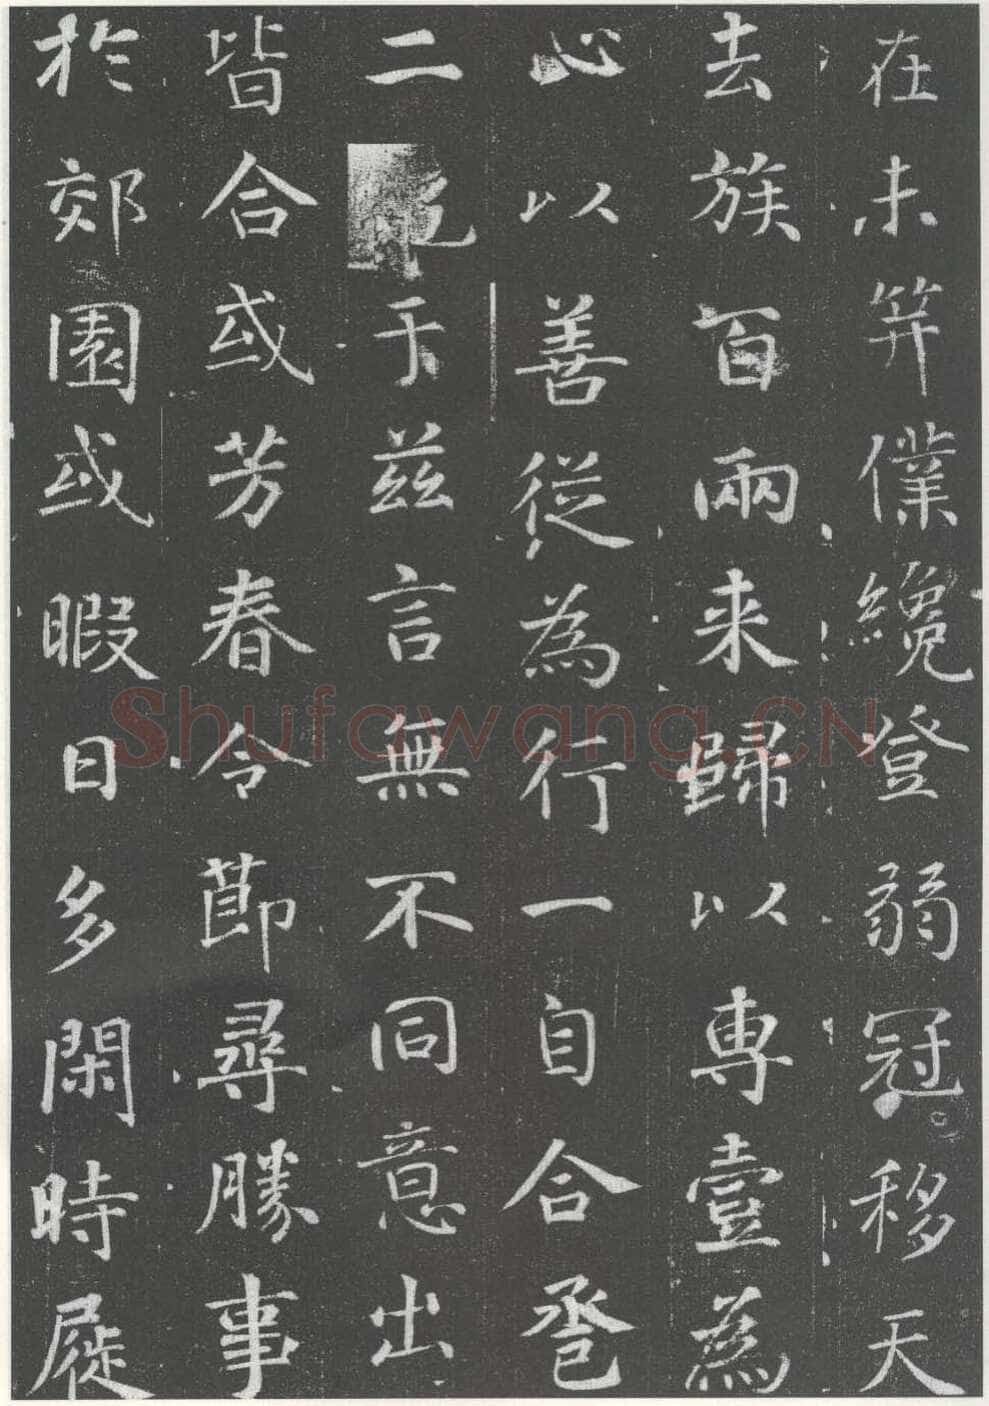 在未笄僕纔登弱冠移天
去族百兩来歸以専壹為
心以善從為行一自合巹
二于兹言無不同意出
皆合或芳春令莭尋勝事
於郊園或暇日多閑時屣
Shufawang.CN